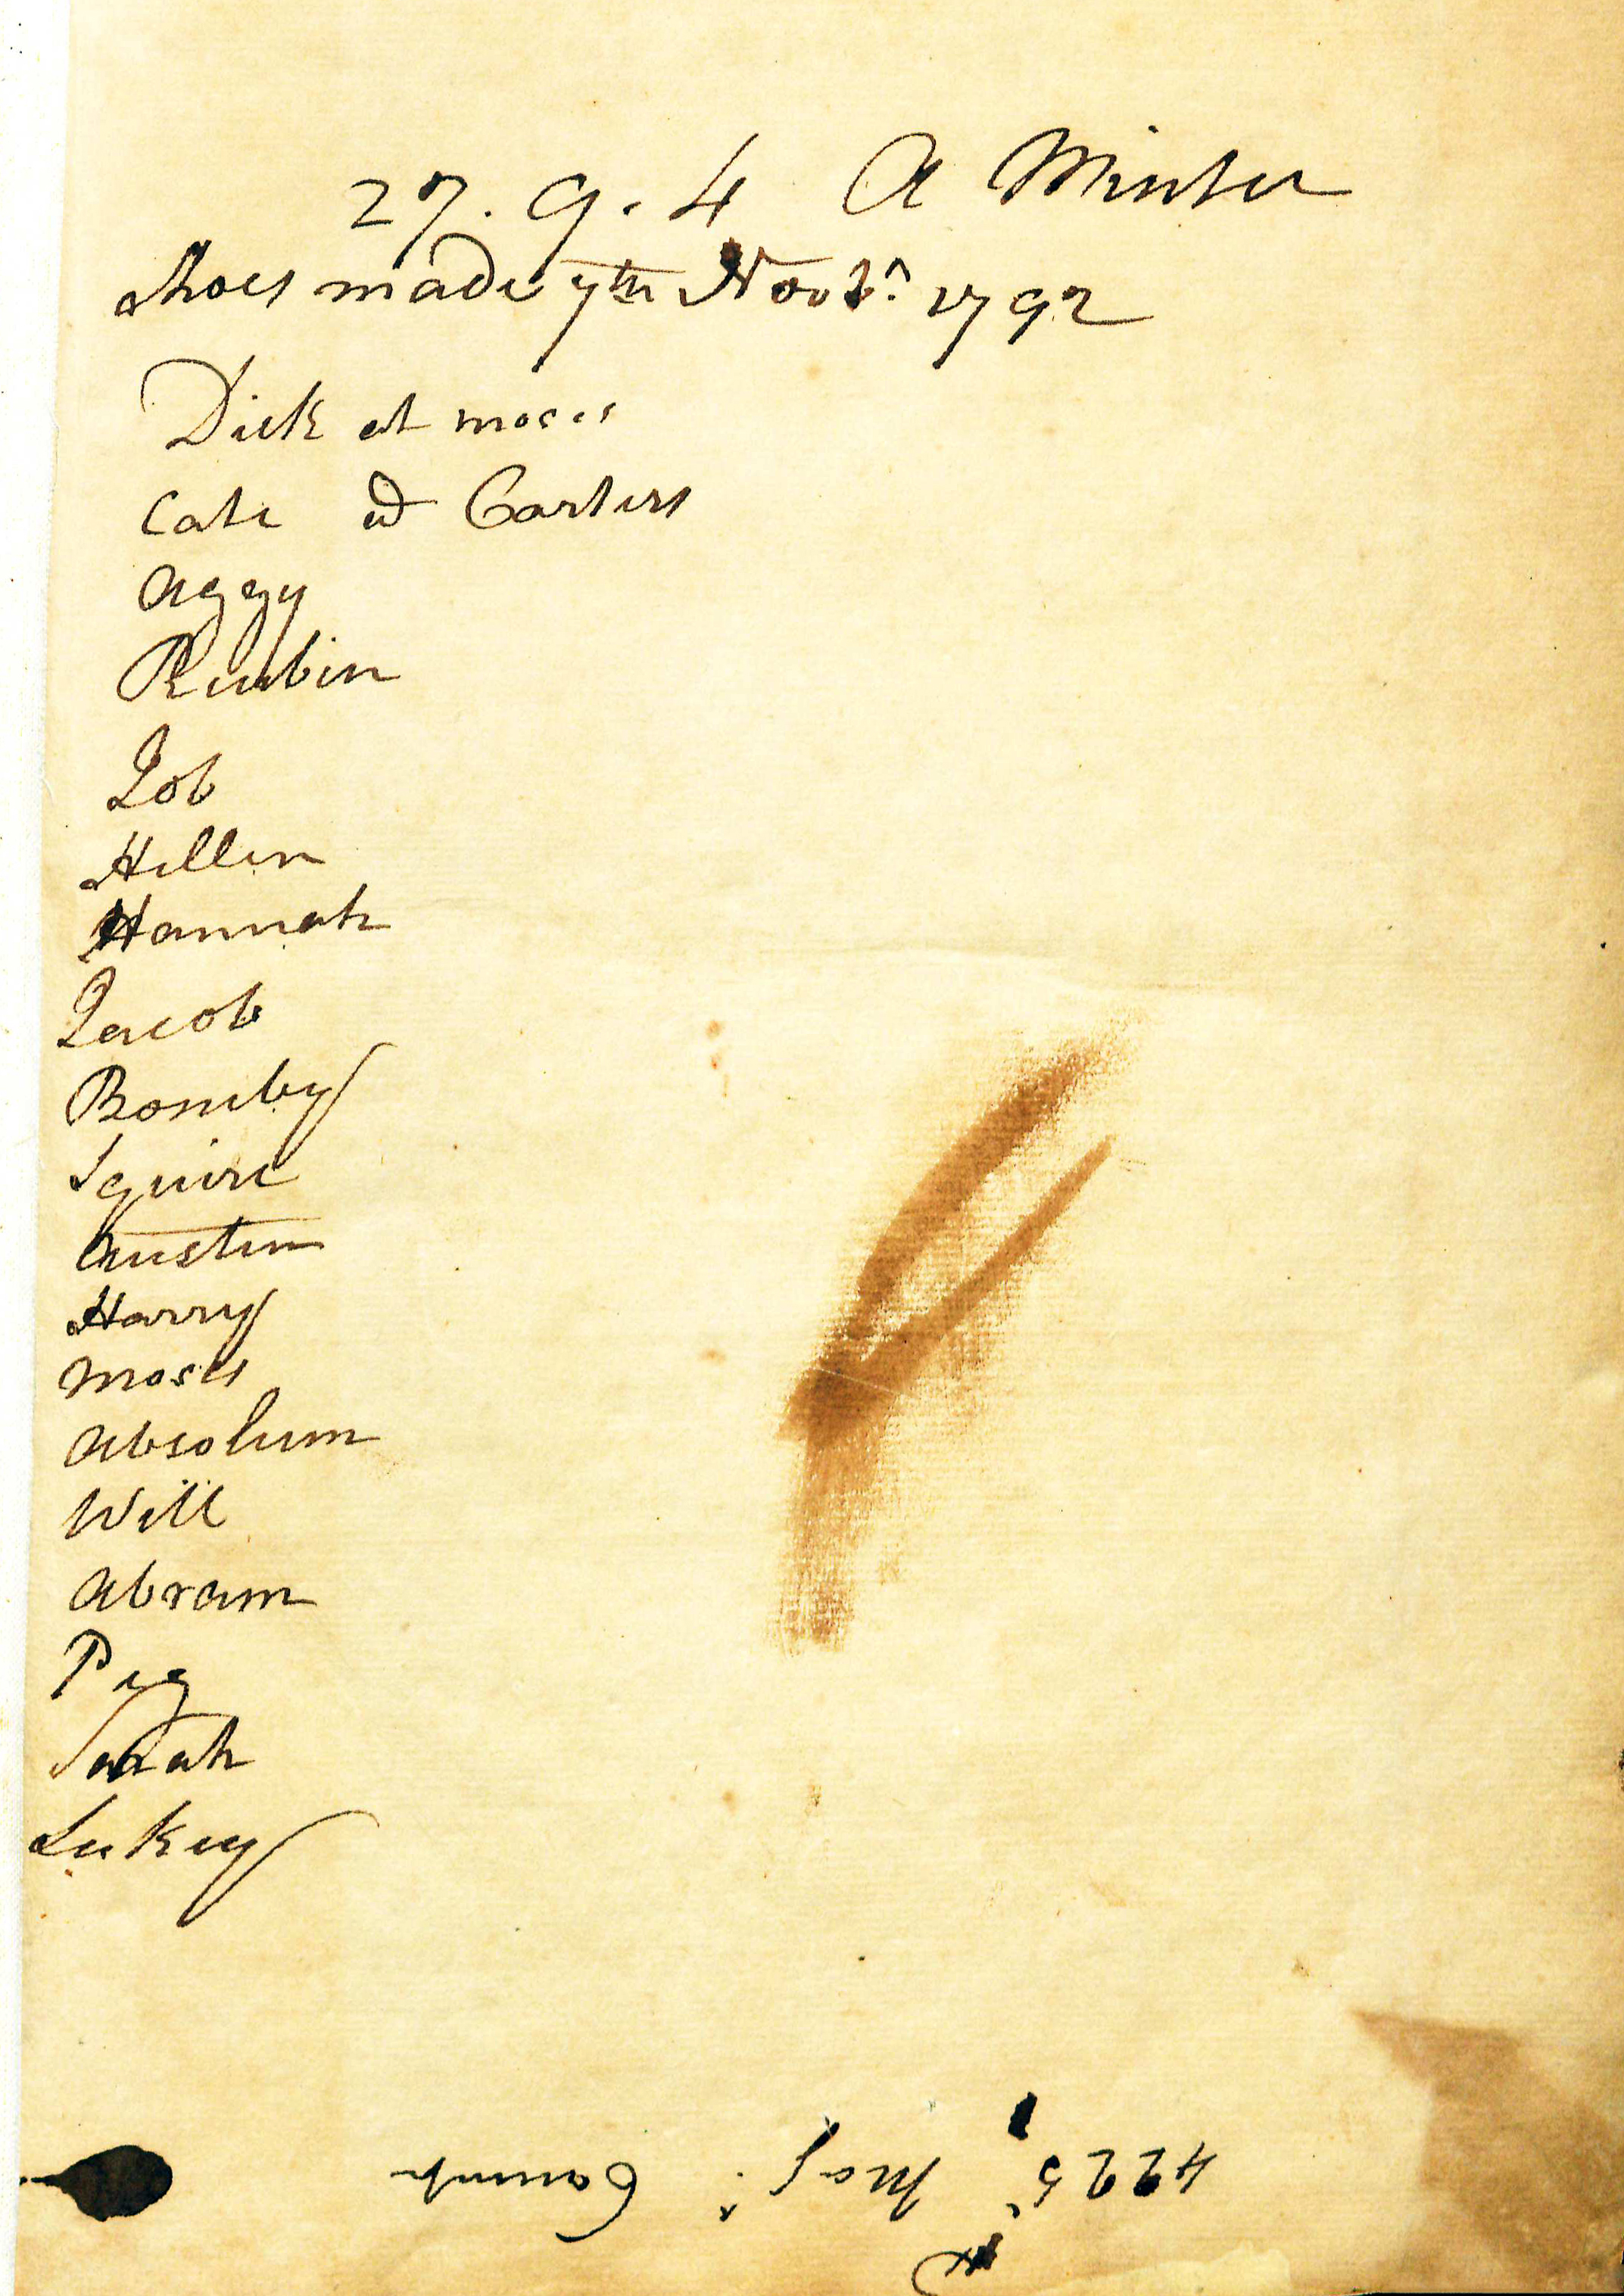 27. 9. 4 A Minter
Shoes made 7th Novbr 1792
Dick at moses
Cate at Carters
Aggy
Reubin
Job
Hellen
Hannah
Jacob
Bomeby
Squire
Austin
Harry
Moses
Absolum
Will
Abram
Peg
Sarah
Lukey
4225 Maj